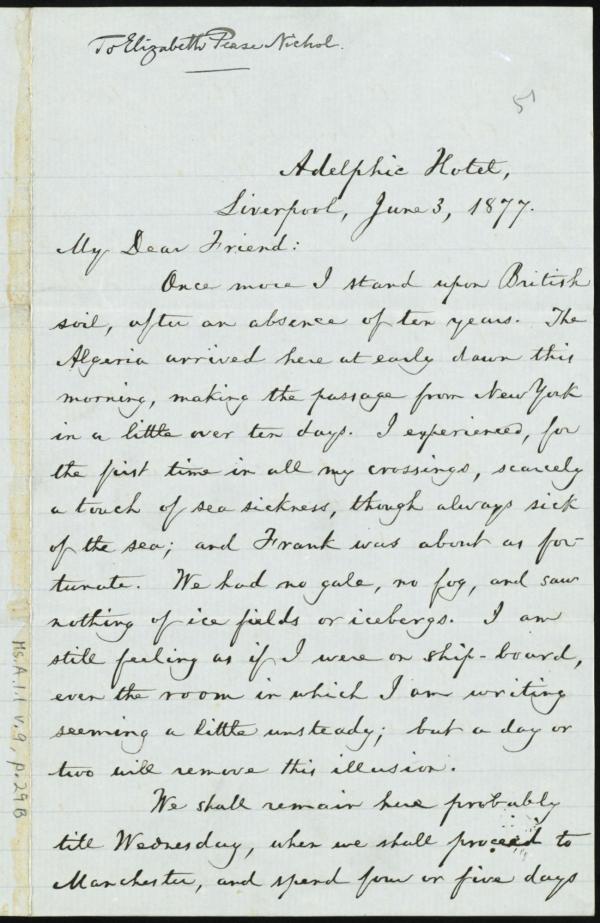 To Elizabeth Pease Nichol.
51
Adelphic Hotel,
Liverpool, June 3, 1877.
My Dear Friend:
Once more I stand upon British
soil, after an absence of ten years. The
Algeria arrived here at early dawn this
morning, making the passage from New York
in a little over ten days. I experienced, for
the first time in all my crossings, scarcely
a touch of sea sickness, though always sick
of the sea; and Frank was about as for-
tunate. We had no gale, no fog, and saw
nothing of ice fields or icebergs. I am
still feeling as if I were on ship-board,
even the room in which I am writing
seeming a little unsteady; but a day or
two will remove this illusion.
We shall remain here probably
till Wednesday, when we shall proceed to
Manchester, and spend four or five days
Ms. A. 1. 1 v. 9, p. 29B